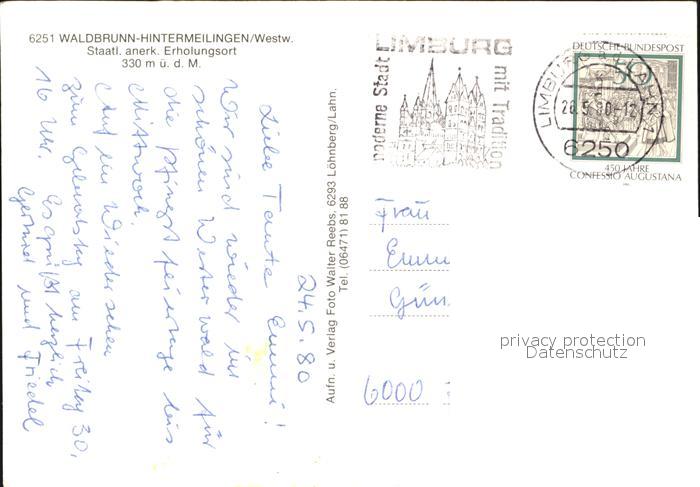 6251 WALDBRUNN-HINTERMEILINGEN/Westw.
Staatl. anerk. Erholungsort
330 m ü. d. M.
24.5.80
Liebe Tante Emmi!
Wir sind wieder im
schönen Westerwald für
die Pfingstfeiertage bis
Mittwoch.
Auf ein Wiedersehen
zum Geburtstag am Freitag 30,
16 Uhr. Es grüßt herzlich
Gertrud und Friedel
Aufn. u. Verlag Foto Walter Reebs, 6293 Löhnberg/Lahn.
Tel. (06471) 81 88
LIMBURG
moderne Stadt
mit Tradition
LIMBURG a d LAHN 1
28.5.80-12
6250
DEUTSCHE BUNDESPOST
50
450 JAHRE
CONFESSIO AUGUSTANA
Frau
Emm
Gün
6000
privacy protection
Datenschutz